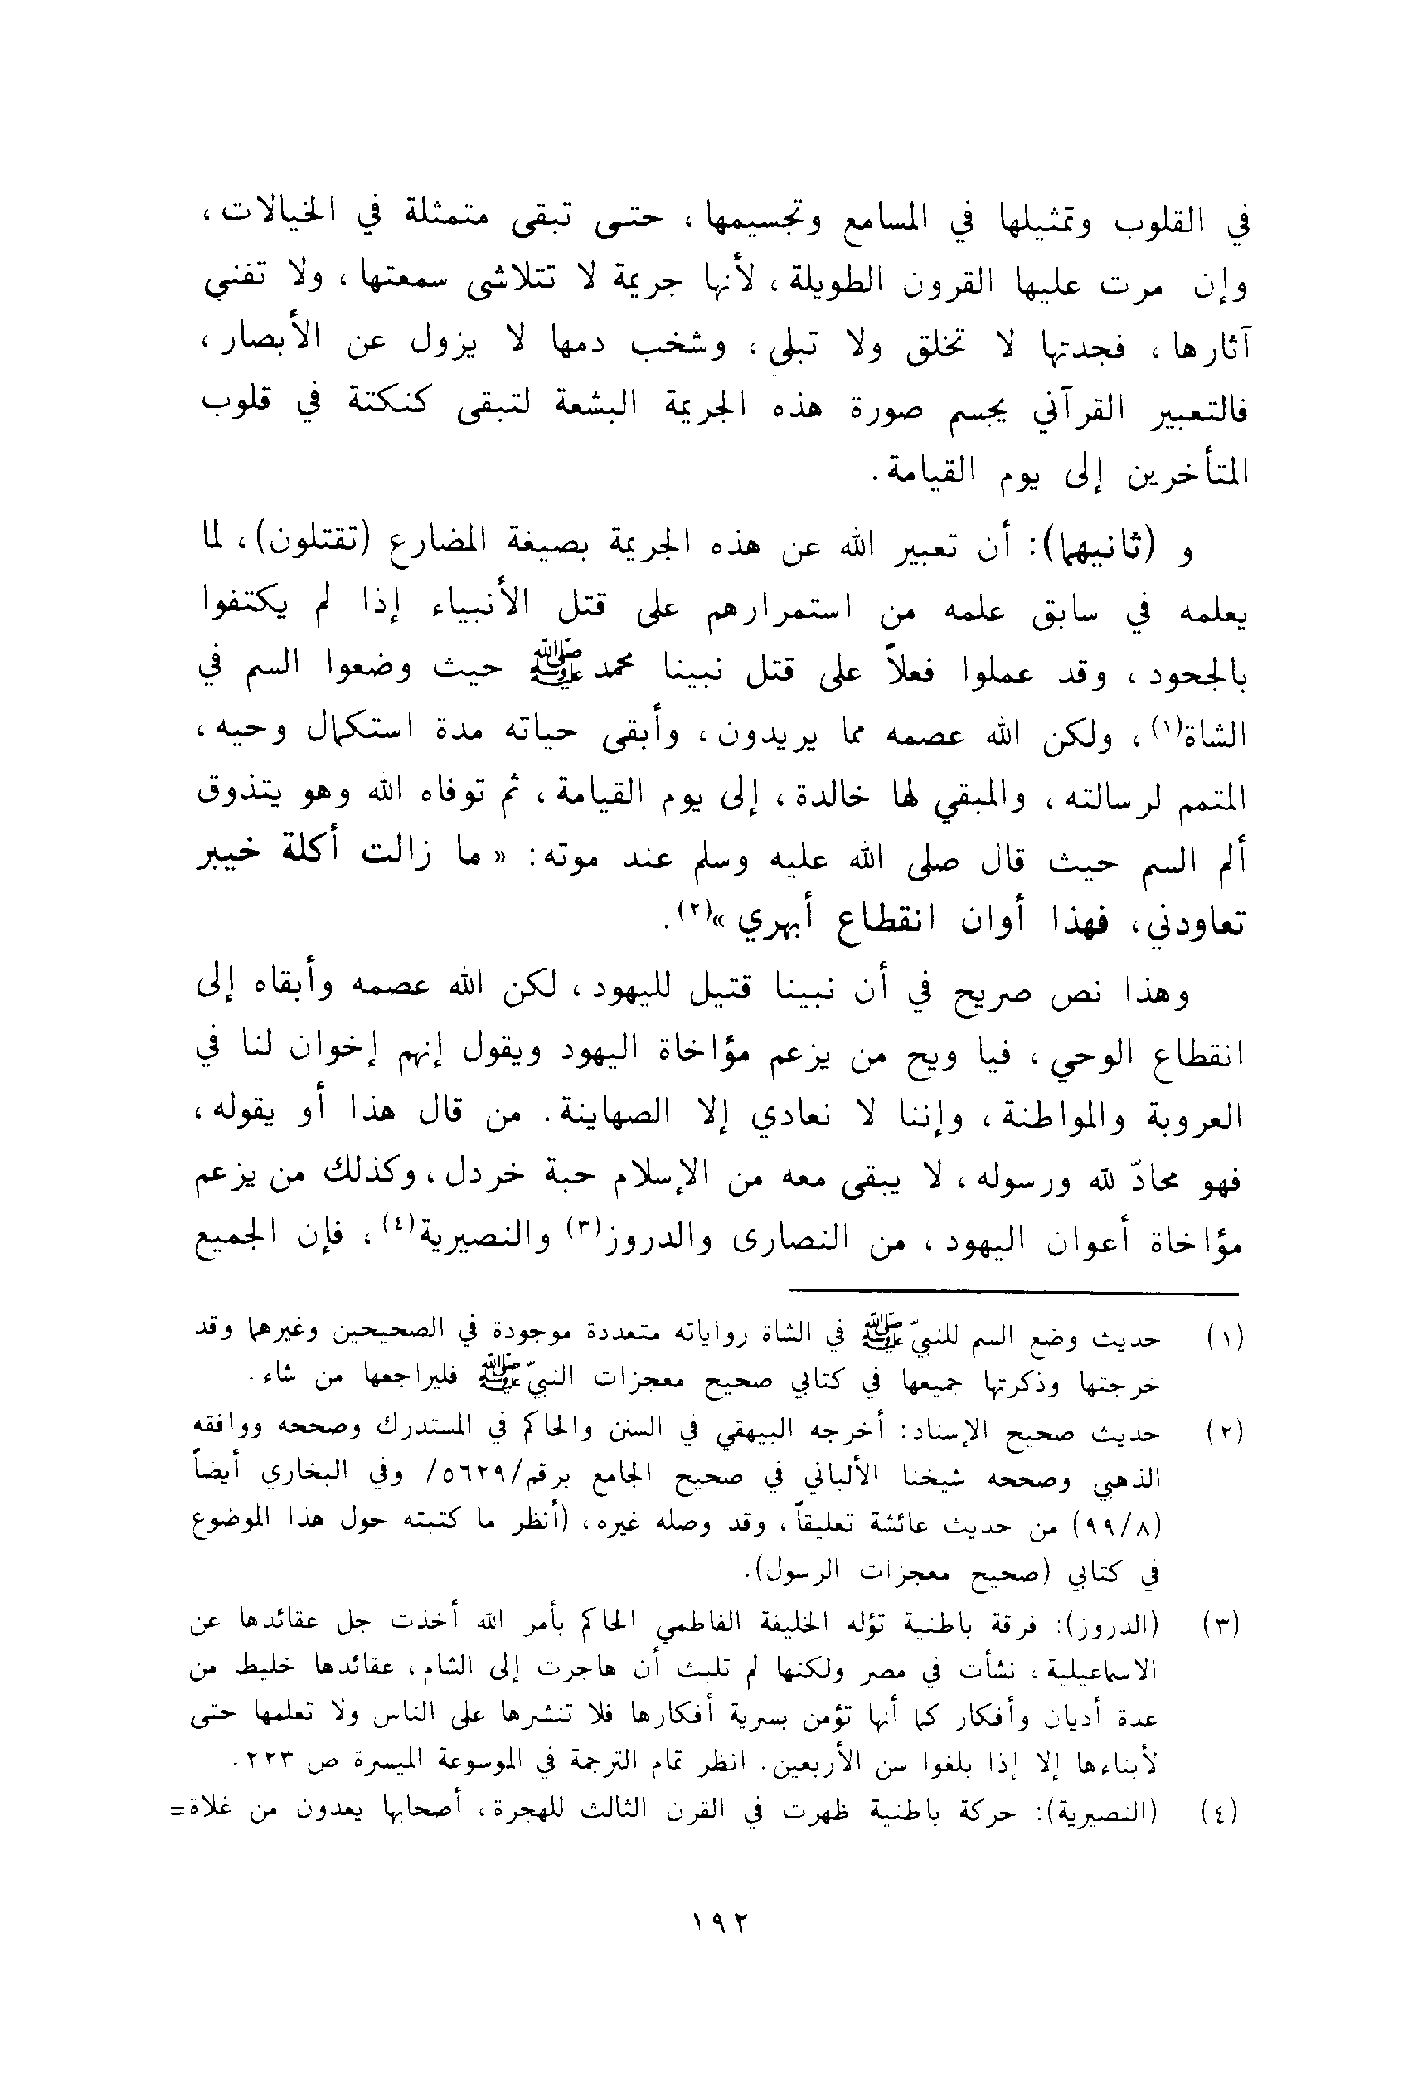 في القلوب وتمثيلها في المسامع وتجسيمها، حتى تبقى متمثلة في الخيالات،
وإن مرت عليها القرون الطويلة، لأنها جريمة لا تتلاشى سمعتها، ولا تفني
آثارها، فجدتها لا تخلق ولا تبلى، وشخب دمها لا يزول عن الأبصار،
فالتعبير القرآني يجسم صورة هذه الجريمة البشعة لتبقى كنكتة في قلوب
المتأخرين إلى يوم القيامة.
و (ثانيهما): أن تعبير الله عن هذه الجريمة بصيغة المضارع (تقتلون)، لما
يعلمه في سابق علمه من استمرارهم على قتل الأنبياء إذا لم يكتفوا
بالجحود، وقد عملوا فعلاً على قتل نبينا محمد ﷺ حيث وضعوا السم في
الشاة(١)، ولكن الله عصمه مما يريدون، وأبقى حياته مدة استكمال وحيه،
المتمم لرسالته، والمبقي لها خالدة، إلى يوم القيامة، ثم توفاه الله وهو يتذوق
ألم السم حيث قال صلى الله عليه وسلم عند موته: « ما زالت أكلة خيبر
تعاودني، فهذا أوان انقطاع أبهري »(٢).
وهذا نص صريح في أن نبينا قتيل لليهود، لكن الله عصمه وأبقاه إلى
انقطاع الوحي، فيا ويح من يزعم مؤاخاة اليهود ويقول إنهم إخوان لنا في
العروبة والمواطنة، وإننا لا نعادي إلا الصهاينة. من قال هذا أو يقوله،
فهو محادّ لله ورسوله، لا يبقى معه من الإسلام حبة خردل، وكذلك من يزعم
مؤاخاة أعوان اليهود، من النصارى والدروز(٣) والنصيرية(٤)، فإن الجميع
(١) حديث وضع السم للنبيّ ﷺ في الشاة رواياته متعددة موجودة في الصحيحين وغيرهما وقد
خرجتها وذكرتها جميعها في كتابي صحيح معجزات النبيّ ﷺ فليراجعها من شاء.
(٢) حديث صحيح الإسناد: أخرجه البيهقي في السنن والحاكم في المستدرك وصححه ووافقه
الذهبي وصححه شيخنا الألباني في صحيح الجامع برقم/٥٦٢٩/ وفي البخاري أيضاً
(٩٩/٨) من حديث عائشة تعليقاً، وقد وصله غيره، (أنظر ما كتبته حول هذا الموضوع
في كتابي (صحيح معجزات الرسول).
(٣) (الدروز): فرقة باطنية تؤله الخليفة الفاطمي الحاكم بأمر الله أخذت جل عقائدها عن
الاسماعيلية، نشأت في مصر ولكنها لم تلبث أن هاجرت إلى الشام، عقائدها خليط من
عدة أديان وأفكار كما أنها تؤمن بسرية أفكارها فلا تنشرها على الناس ولا تعلمها حتى
لأبناءها إلا إذا بلغوا سن الأربعين. انظر تمام الترجمة في الموسوعة الميسرة ص ٢٢٣.
(٤) (النصيرية): حركة باطنية ظهرت في القرن الثالث للهجرة، أصحابها يعدون من غلاة=
١٩٢